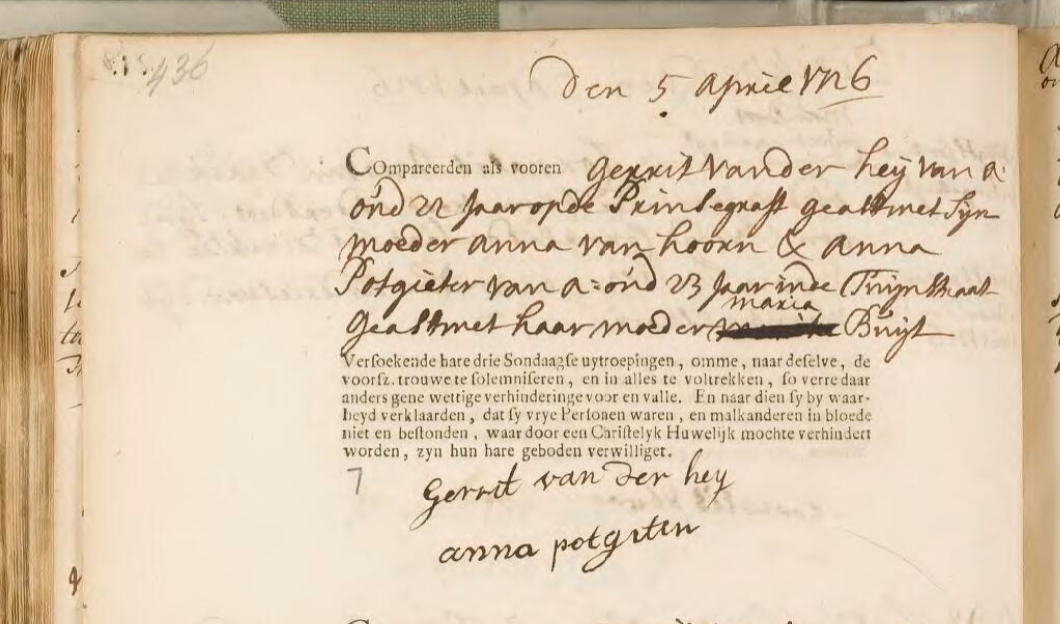 436
Den 5 April 1726
Compareerden als vooren Gerrit Vander heij van a:
oud 22 Jaar op de Prinsegraft geassmet Sijn
moeder anna van hoorn & anna
Potgieter van a: oud 23 Jaar inde Tuijnstraat
maria
Geasst met haar moeder Buijt
Versoekende hare drie Sondaagse uytroepingen, omme, naar deselve, de
voorsz. trouwe te solemniseren, en in alles te voltrekken, so verre daar
anders gene wettige verhinderinge voor en valle. En naar dien sy by waar-
heyd verklaarden, dat sy vrye Personen waren, en malkanderen in bloede
niet en bestonden, waar door een Christelyk Huwelijk mochte verhindert
worden, zyn hun hare geboden verwilliget.
7
Gerrit van der heij
anna potgiten